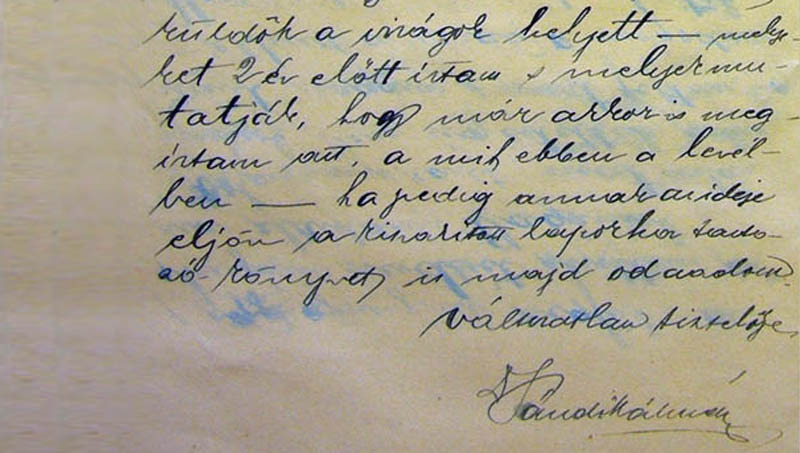 küldök a virágok helyett — melye-
ket 2 év előtt írtam s melyek mu-
tatják, hogy már akkor is meg-
írtam azt, a mit ebben a levél-
ben — ha pedig annak az ideje
eljön a kiszakított lapocka tarto-
zó könyvet is majd odaadom.
Változatlan tisztelője
Sándi Kálmán